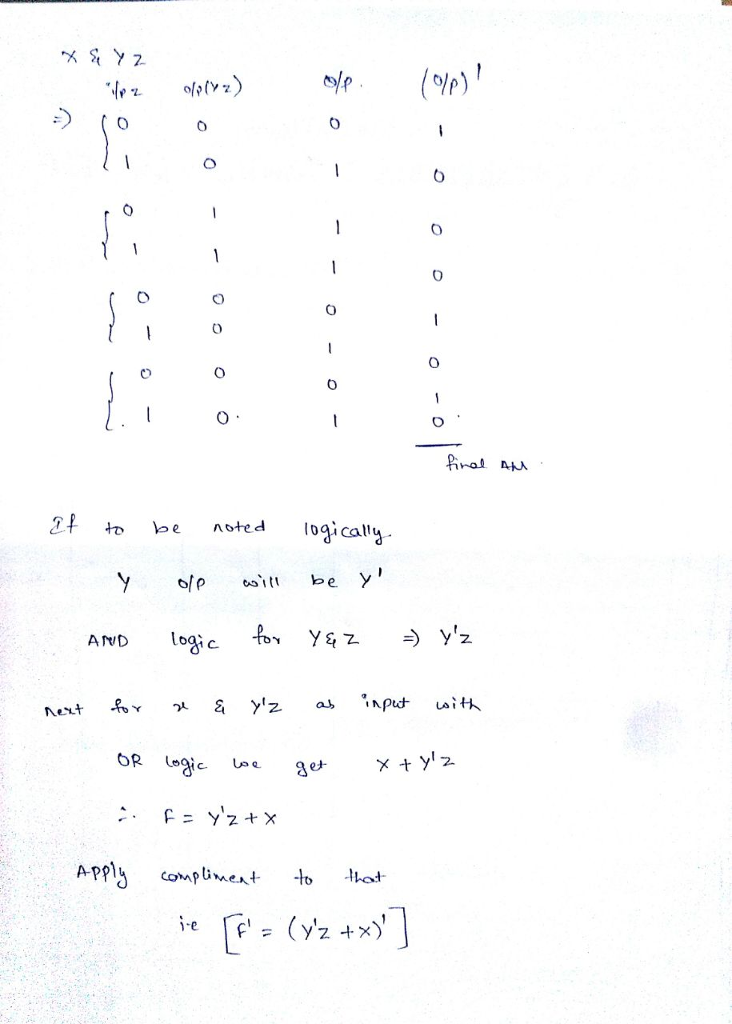 x & Y Z
i/p z o/p(Yz) o/p. (o/p)'
=) { 0 0 0 1
1 0 1 0
{ 0 1 1 0
1 1 1 0
{ 0 0 0 1
1 0 1 0
{ 0 0 0 1
1 0. 1 0.
final
If to be noted logically.
y o/p will be y'
AND logic for Y & Z =) y'z
next for x & y'z as input with
OR logic we get x + y'z
∴ F = y'z + x
Apply compliment to that
i.e [F' = (y'z + x)']